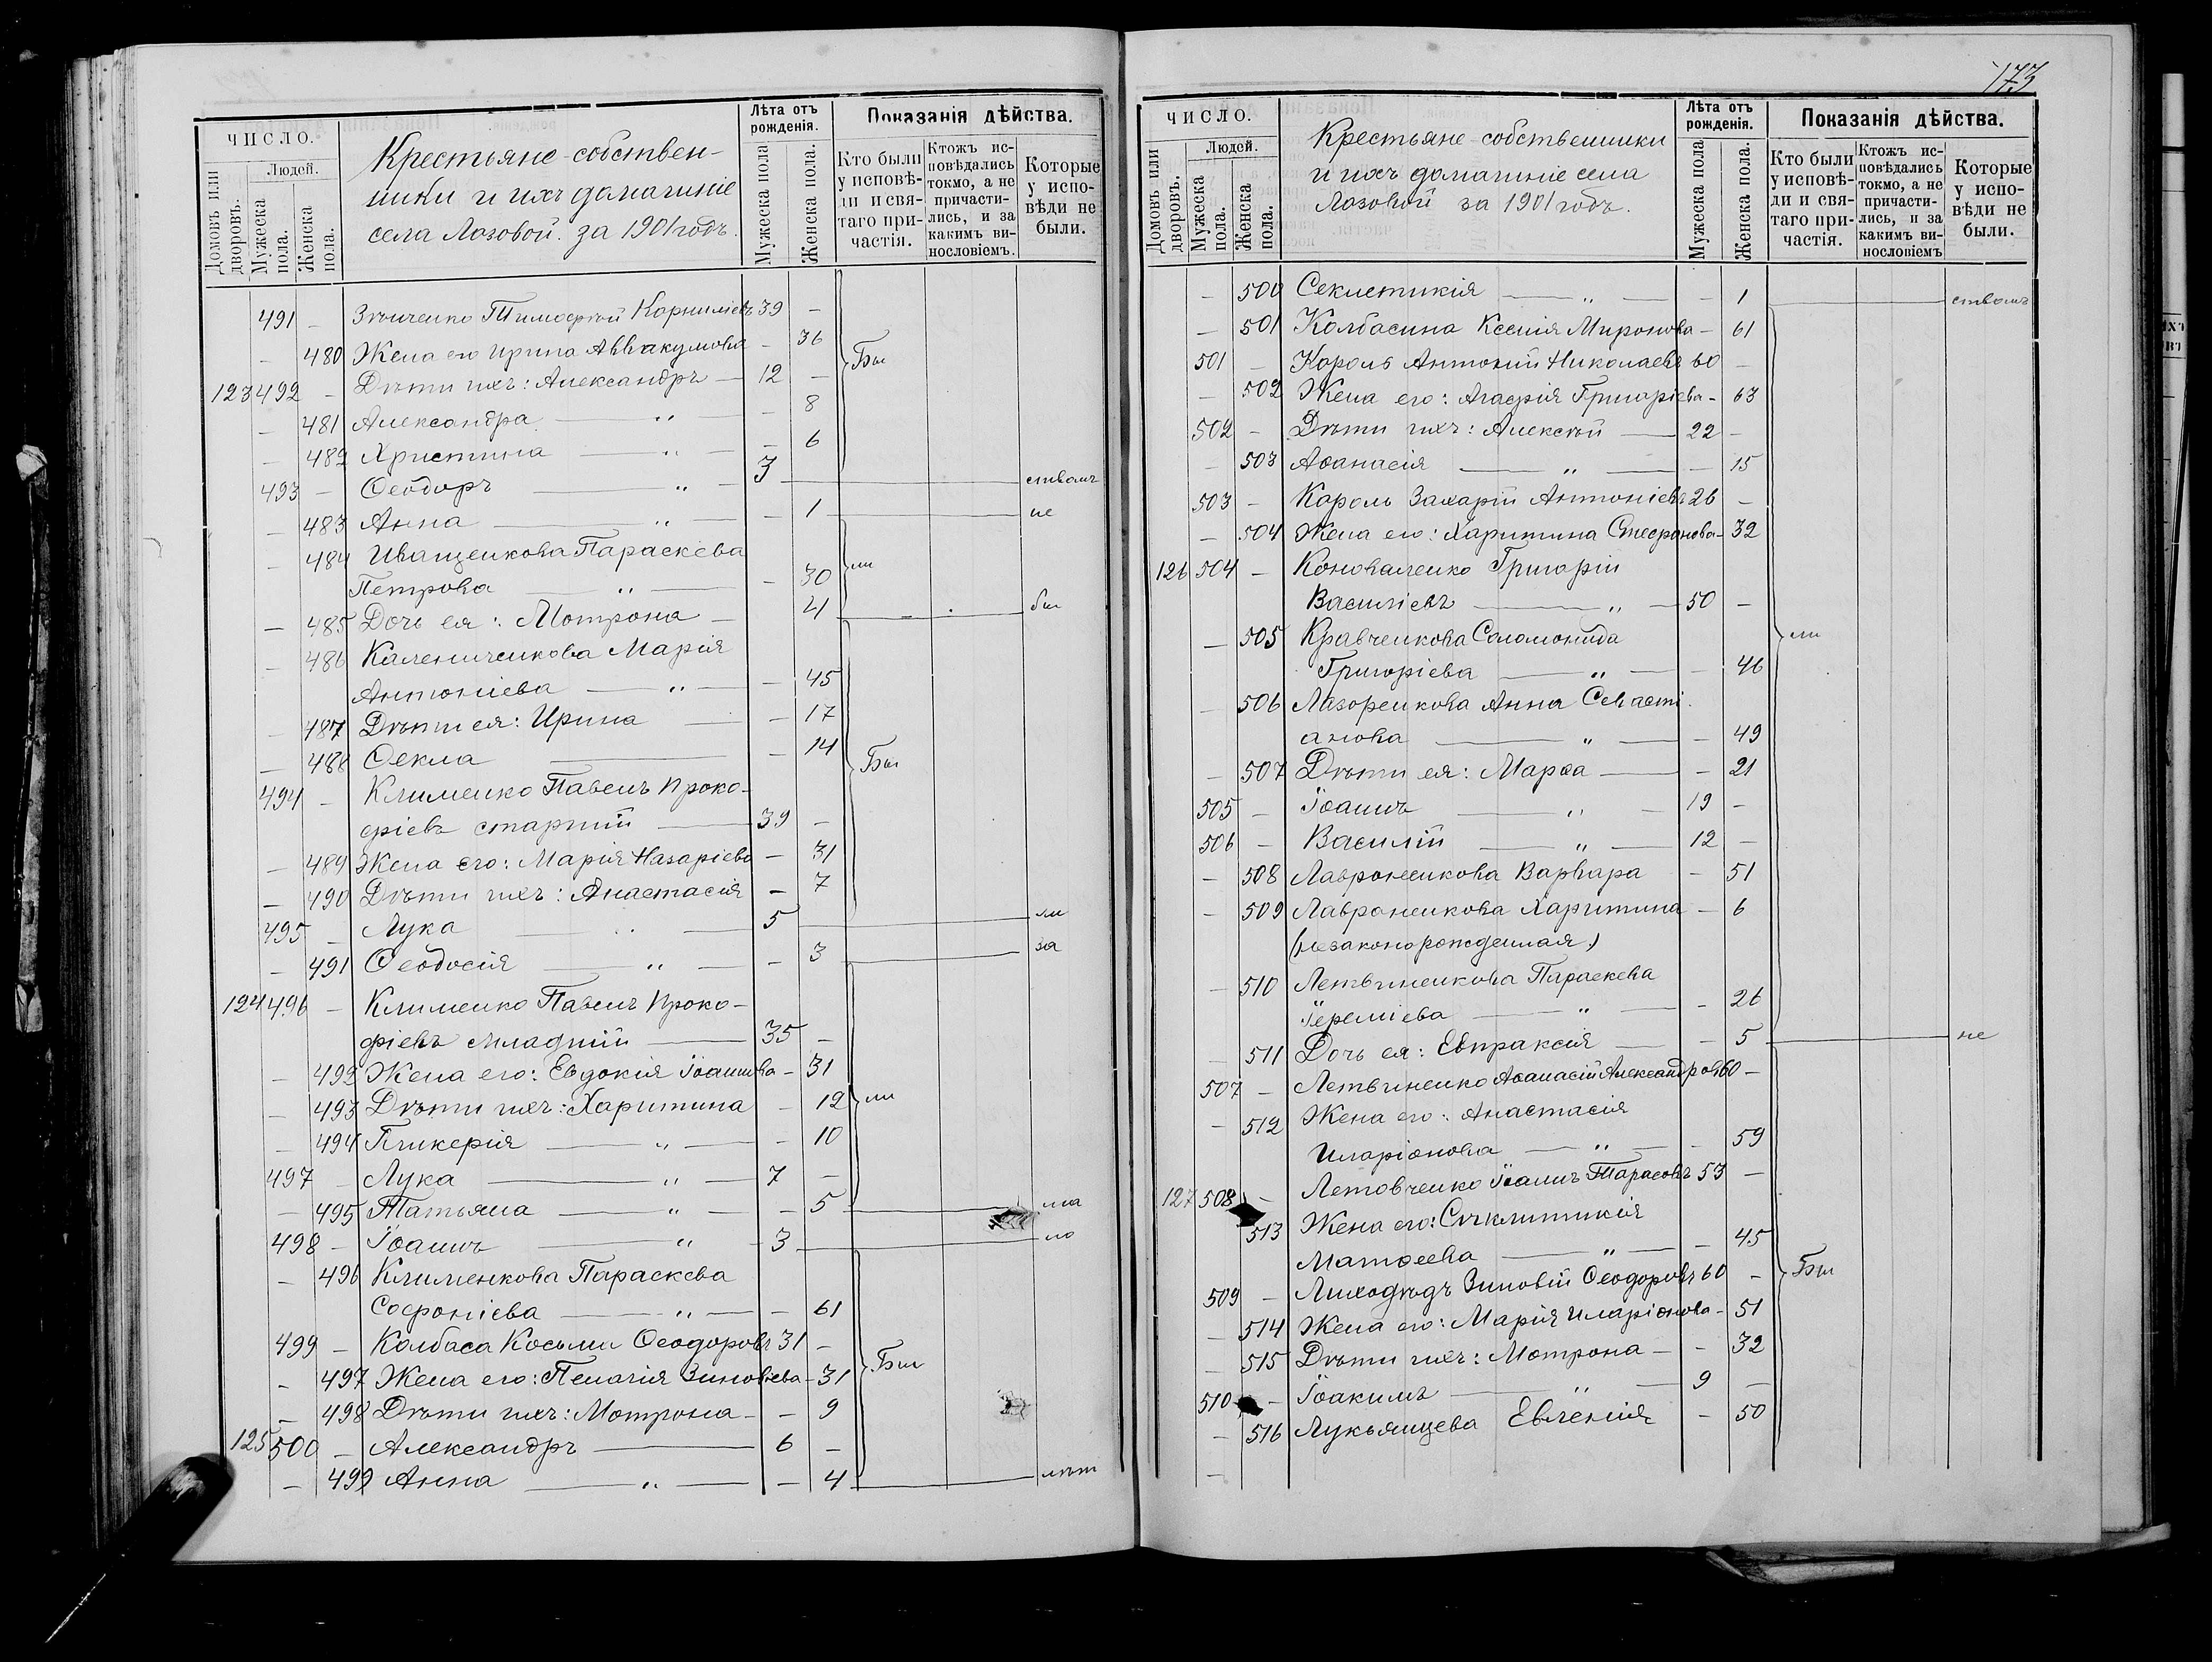 ЧИСЛО.
Домовъ или дворовъ.
Людей.
Мужеска пола.
Женска пола.
Крестьяне-собствен-
ники и ихъ домашніе
села Лозовой. за 1901 годъ.
Лѣта отъ рожденія.
Мужеска пола
Женска пола.
Показанія дѣйства.
Кто были у исповѣди и святаго причастія.
Ктожъ исповѣдались токмо, а не причастились, и за какимъ винословіемъ.
Которые у исповѣди не были.
491 – Зѣнченко Тимоѳей Корниліевъ 39 –
– 480 Жена его Ирина Аввакумова – 36 Бы
123 492 – Дѣти ихъ: Александръ — 12 –
– 481 Александра — „ – 8
– 482 Христина — „ — – 6
493 – Ѳеодоръ — „ – 3 — ствомъ
– 483 Анна — „ — – 1 — не
– 484 Иващенкова Параскева
Петрова — „ — – 30 ли
– 485 Дочь ея: Мотрона — 4 — бы
– 486 Калениченкова Марія
Антоніева — „ — – 45
– 487 Дѣти ея: Ирина — – 17
– 488 Ѳекла — – 14 Бы
494 – Клименко Павелъ Проко-
фіевъ старшій — 39 –
– 489 Жена его: Марія Назаріева – 31
– 490 Дѣти ихъ: Анастасія – 7
495 – Лука — 5 — ли
– 491 Ѳеодосія — „ — – 3 — за
124 496 – Клименко Павелъ Проко-
фіевъ младшій — 35 –
– 492 Жена его: Евдокія Іоаннова – 31
– 493 Дѣти ихъ: Харитина – 12 ли
– 494 Гликерія — „ — – 10
497 – Лука — „ — 7 –
– 495 Татьяна — „ — – 5 — ма
498 – Іоаннъ — „ – 3 — ло
– 496 Клименкова Параскева
Софроніева — „ — – 61
499 – Колбаса Косьми Ѳеодоровъ 31 –
– 497 Жена его: Пелагія Зиновіева – 31 Бы
– 498 Дѣти ихъ: Мотрона – – 9
125 500 – Александръ — 6 –
– 499 Анна — „ — – 4 — лѣт
173
ЧИСЛО.
Домовъ или дворовъ.
Людей.
Мужеска пола.
Женска пола.
Крестьяне-собственники
и ихъ домашніе села
Лозовой за 1901 годъ.
Лѣта отъ рожденія.
Мужеска пола
Женска пола.
Показанія дѣйства.
Кто были у исповѣди и святаго причастія.
Ктожъ исповѣдались токмо, а не причастились, и за какимъ винословіемъ
Которые у исповѣди не были.
– 500 Секлетикія — „ — – 1 — ствомъ
– 501 Колбасина Ксенія Миронова – 61
501 – Король Антоній Николаевъ 60 –
– 502 Жена его: Агафія Григоріева – 63
502 – Дѣти ихъ: Алексѣй — 22 –
– 503 Аѳанасія — „ — – 15
503 – Король Захарій Антоніевъ 26 –
– 504 Жена его: Харитина Стефанова – 32
126 504 – Коноваленко Григорій
Василіевъ — „ — 50 –
– 505 Кравченкова Соломонида ли
Григоріева — „ — – 46
– 506 Лазоренкова Анна Севасті-
анова — „ — – 49
– 507 Дѣти ея: Марѳа — – 21
505 – Іоаннъ — „ — 19 –
506 – Василій — „ — 12 –
– 508 Лавроненкова Варвара – 51
– 509 Лавроненкова Харитина – 6
(незаконорожденная)
– 510 Летвиненкова Параскева
Іереміева — „ — – 26
– 511 Дочь ея: Евпраксія — – 5 — не
507 – Летвиненко Аѳанасій Александровъ 60 –
– 512 Жена его: Анастасія
Иларіонова — „ — – 59
127 508 – Летовченко Іоаннъ Тарасовъ 53 –
513 Жена его: Сѵклитикія
Матѳеева — „ — – 45
509 – Лиходѣдъ Зиновій Ѳеодоровъ 60 – Бы
– 514 Жена его: Марія Иларіонова – 51
– 515 Дѣти ихъ: Мотрона – – 32
510 – Іоакимъ — „ — 9 –
– 516 Лукьянцева Евгенія – 50
–